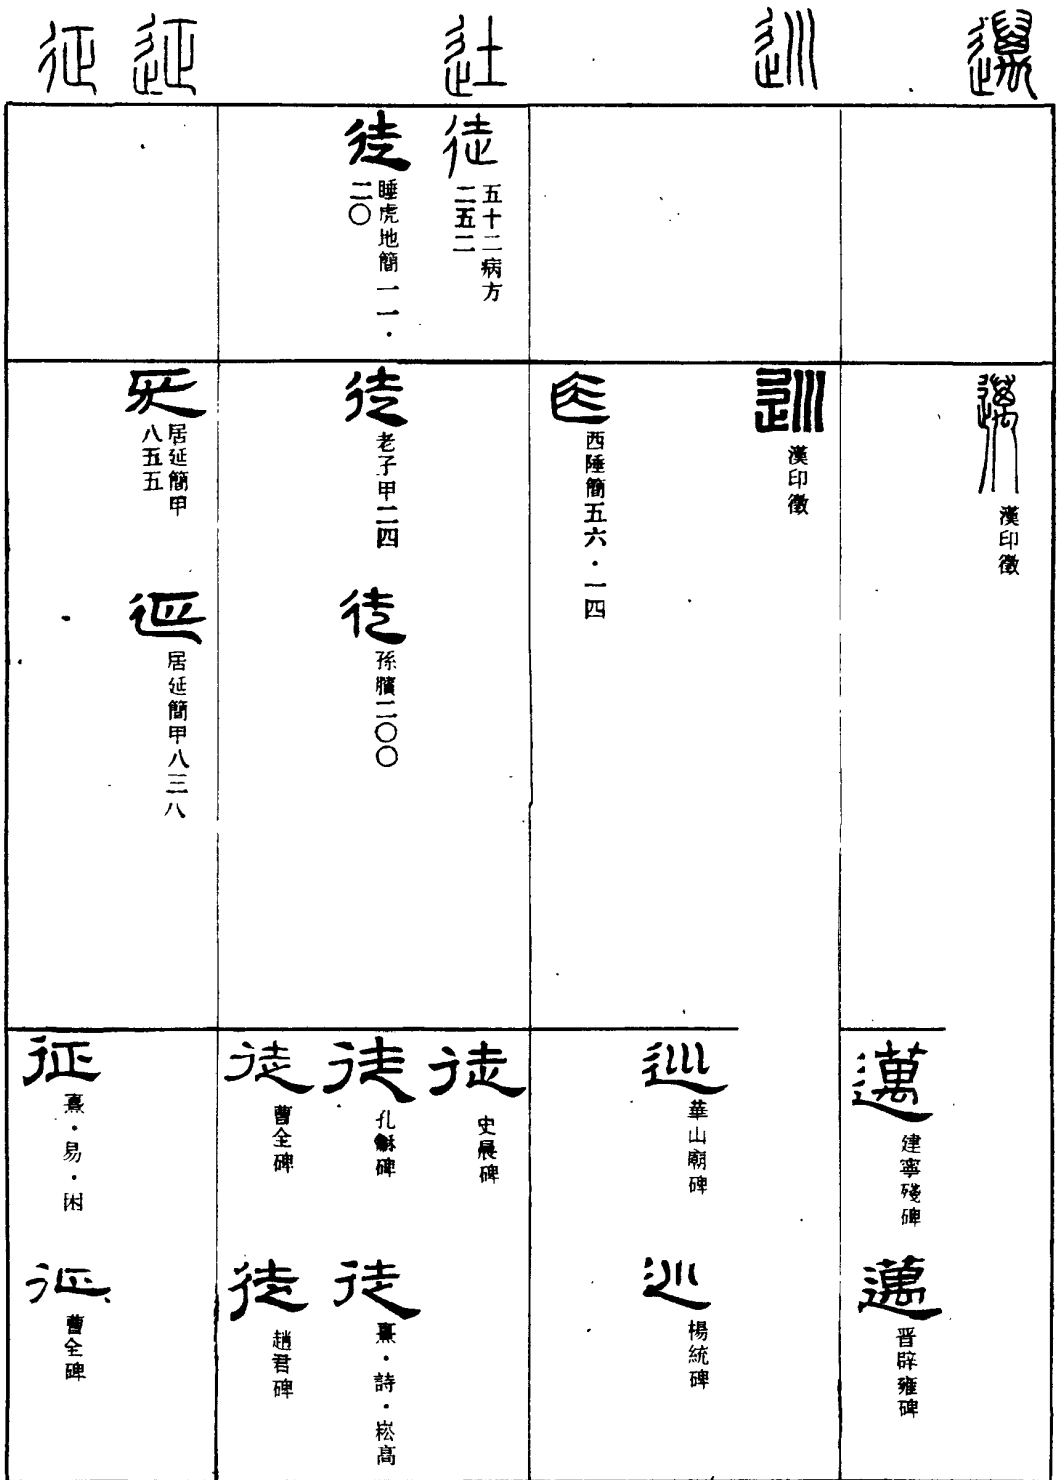 邁
邁
漢印徵
邁
建寧殘碑
邁
晋辟雍碑
巡
巡
漢印徵
西陲簡五六・一四
巡
華山廟碑
巡
楊統碑
辻
徒
五十二病方
二五二
徒
睡虎地簡一一・
二〇
徒
老子甲二四
徒
孫臏二〇〇
徒
史晨碑
徒
孔龢碑
徒
熹・詩・崧高
徒
曹全碑
徒
趙君碑
延
征
居延簡甲
八五五
居延簡甲八三八
征
熹・易・困
征
曹全碑